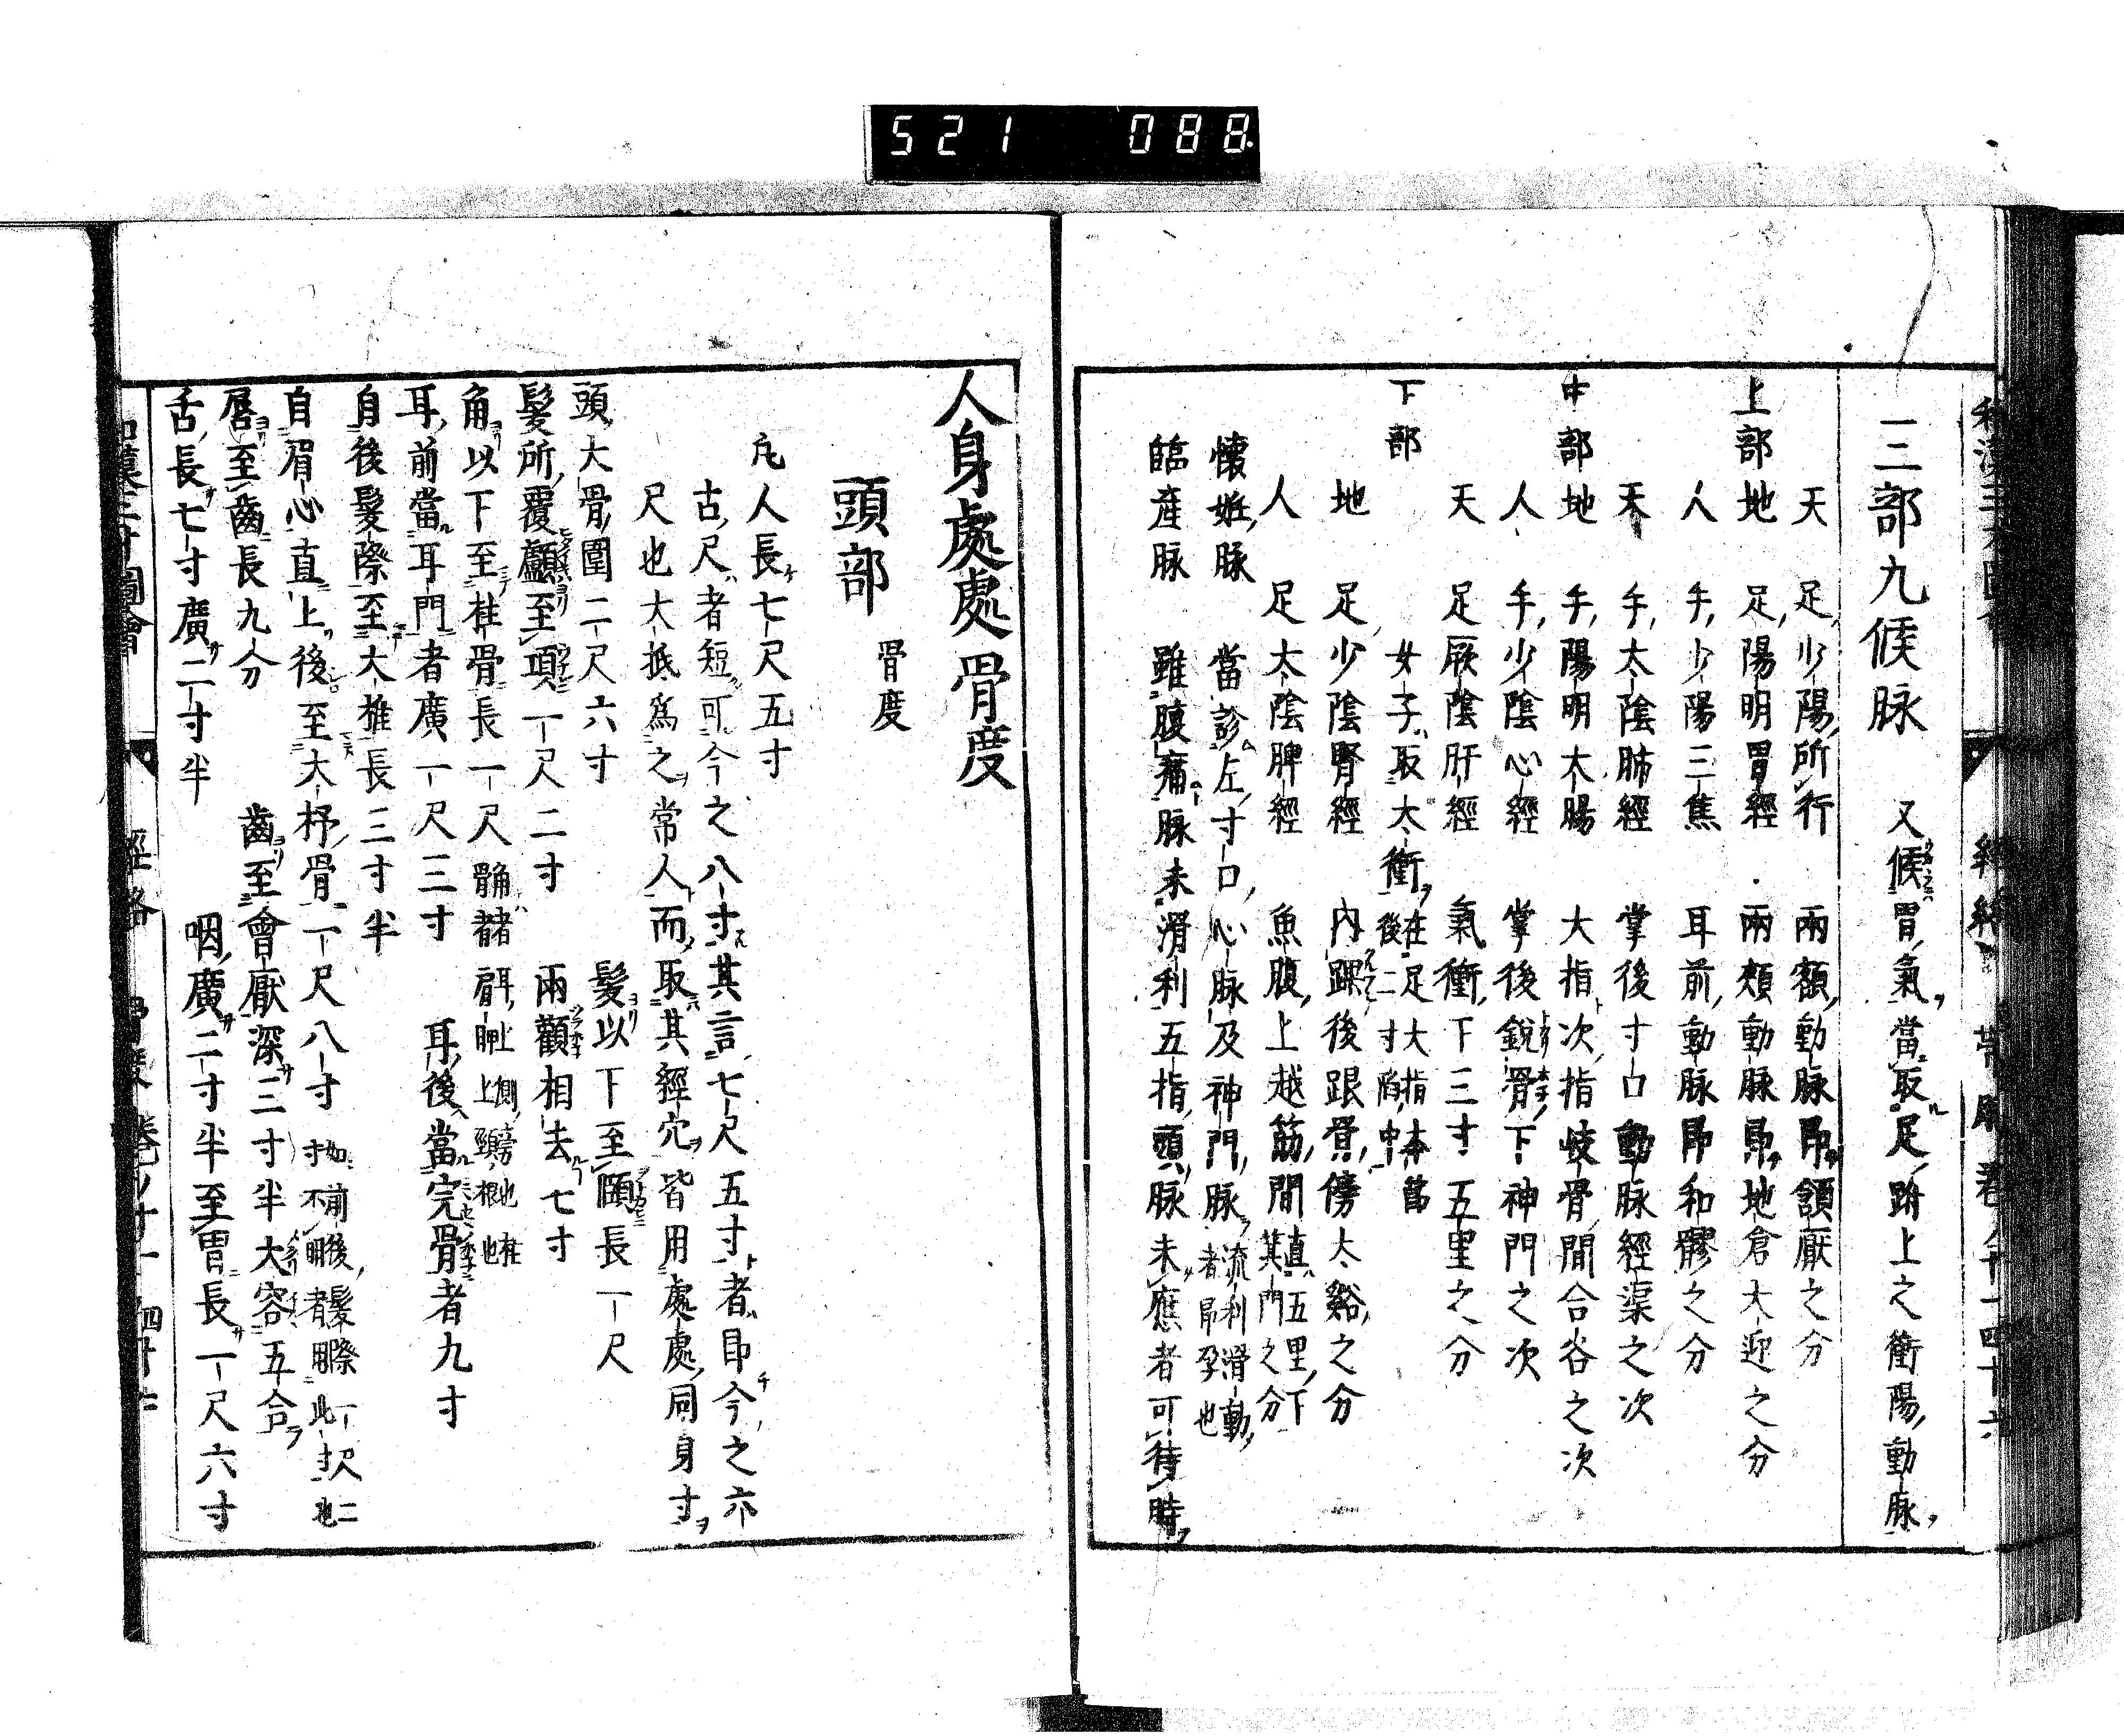 521 088
三部九候脉 又候胃氣當取足跗上之衝陽動脉
天 足少陽所行 兩額動脉即頷厭之分
上部地 足陽明胃經 兩頰動脉即地倉大迎之分
人 手少陽三焦 耳前動脉即和髎之分
天 手太陰肺經 掌後寸口動脉經渠之次
中部地 手陽明大腸 大指次指岐骨間合谷之次
人 手少陰心經 掌後銳骨下神門之次
天 足厥陰肝經 氣衝下三寸五里之分
下部 女子取大衝在足大指本節後二寸陷中
地 足少陰腎經 內踝後跟骨傍太谿之分
人 足太陰脾經 魚腹上越筋間直五里下箕門之分
懷姙脉 當診左寸口心脉及神門脉流利滑動者即孕也
臨產脉 雖腹痛脉未滑利五指頭脉未應者可待時
人身處處骨度
骨度
頭部
凡人長七尺五寸
古尺者短可今之八寸其言七尺五寸者即今之六
尺也大抵爲之常人而取其經穴皆用處處同身寸
頭大骨圍二尺六寸 髮以下至頤長一尺
髮所覆顱至項一尺二寸 兩顴相去七寸
角以下至柱骨長一尺
耳前當耳門者廣一尺三寸 耳後當完骨者九寸
自後髮際至大椎長三寸半
自眉心直上後至大杼骨一尺八寸 如前後髮際不明者用此一尺二寸也
唇至齒長九分 齒至會厭深三寸半大容五合
舌長七寸廣二寸半 咽廣二寸半至胃長一尺六寸